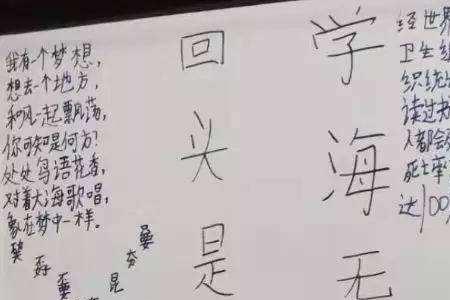 我有一个梦想,
想去一个地方,
和风一起飘荡,
你可知是何方?
处处鸟语花香,
对着大海歌唱,
象在梦中一样。
回头是
学海无
经世界
卫生组
织统
读过书
人都会
死亡率
达100